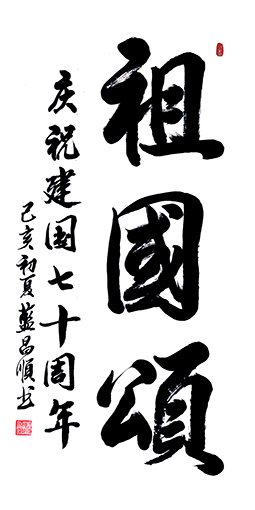 祖國頌
庆祝建国七十周年
己亥初夏藍昌順书